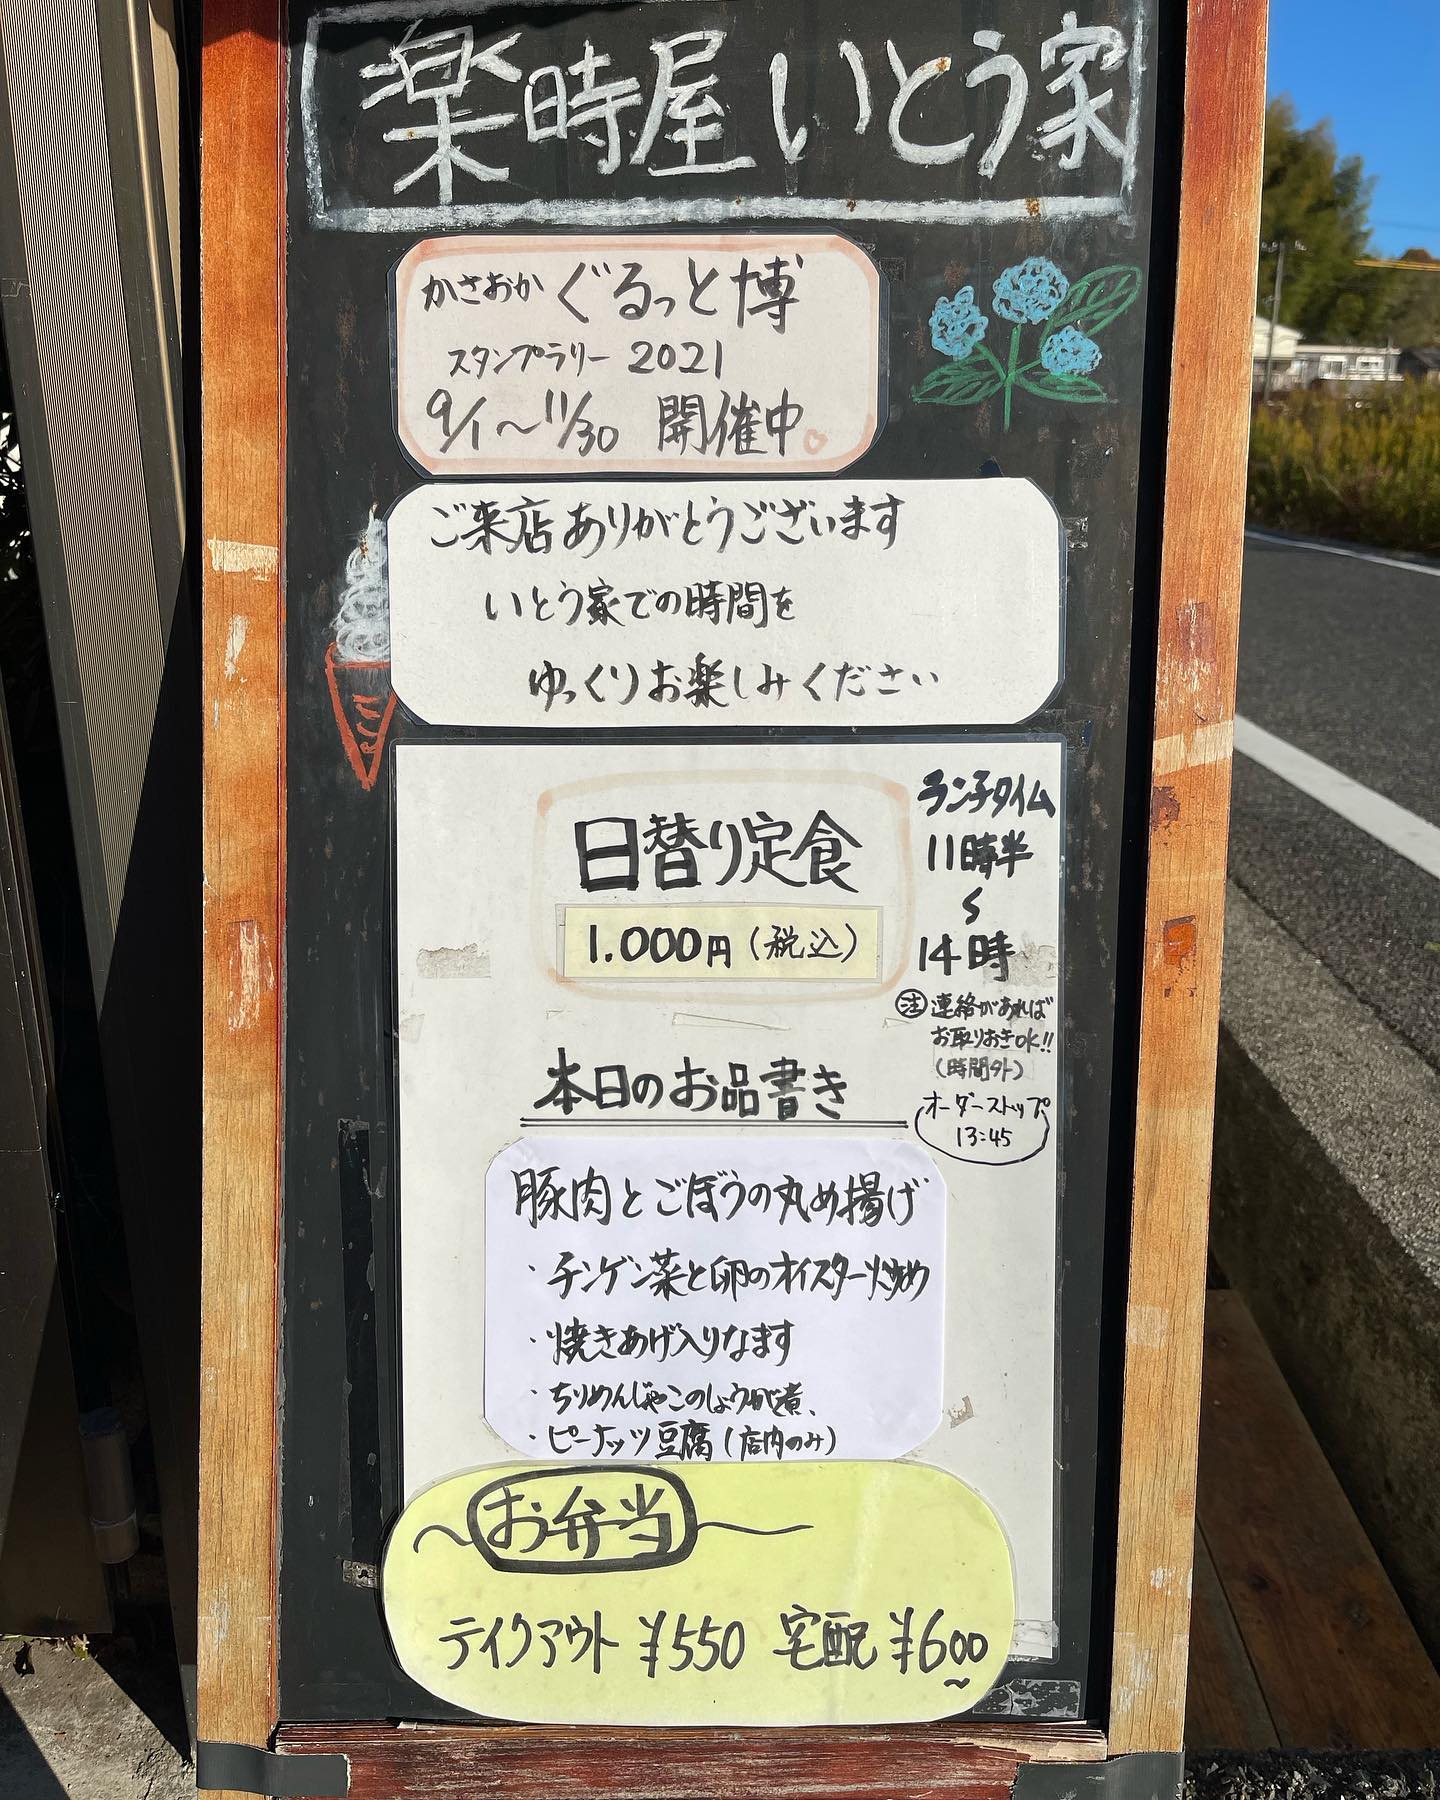 楽時屋 いとう家
かさおか ぐるっと博
スタンプラリー 2021
9/1〜11/30 開催中。
ご来店ありがとうございます
いとう家での時間を
ゆっくりお楽しみください
日替り定食
1.000円(税込)
ランチタイム
11時半
〜
14時
注 連絡があれば
お取りおきOK!!
(時間外)
オーダーストップ
13:45
本日のお品書き
豚肉とごぼうの丸め揚げ
・チンゲン菜と卵のオイスター炒め
・焼きあげ入りなます
・ちりめんじゃこのしょうが煮、
・ピーナッツ豆腐(店内のみ)
〜お弁当〜
テイクアウト ¥550 宅配 ¥600〜